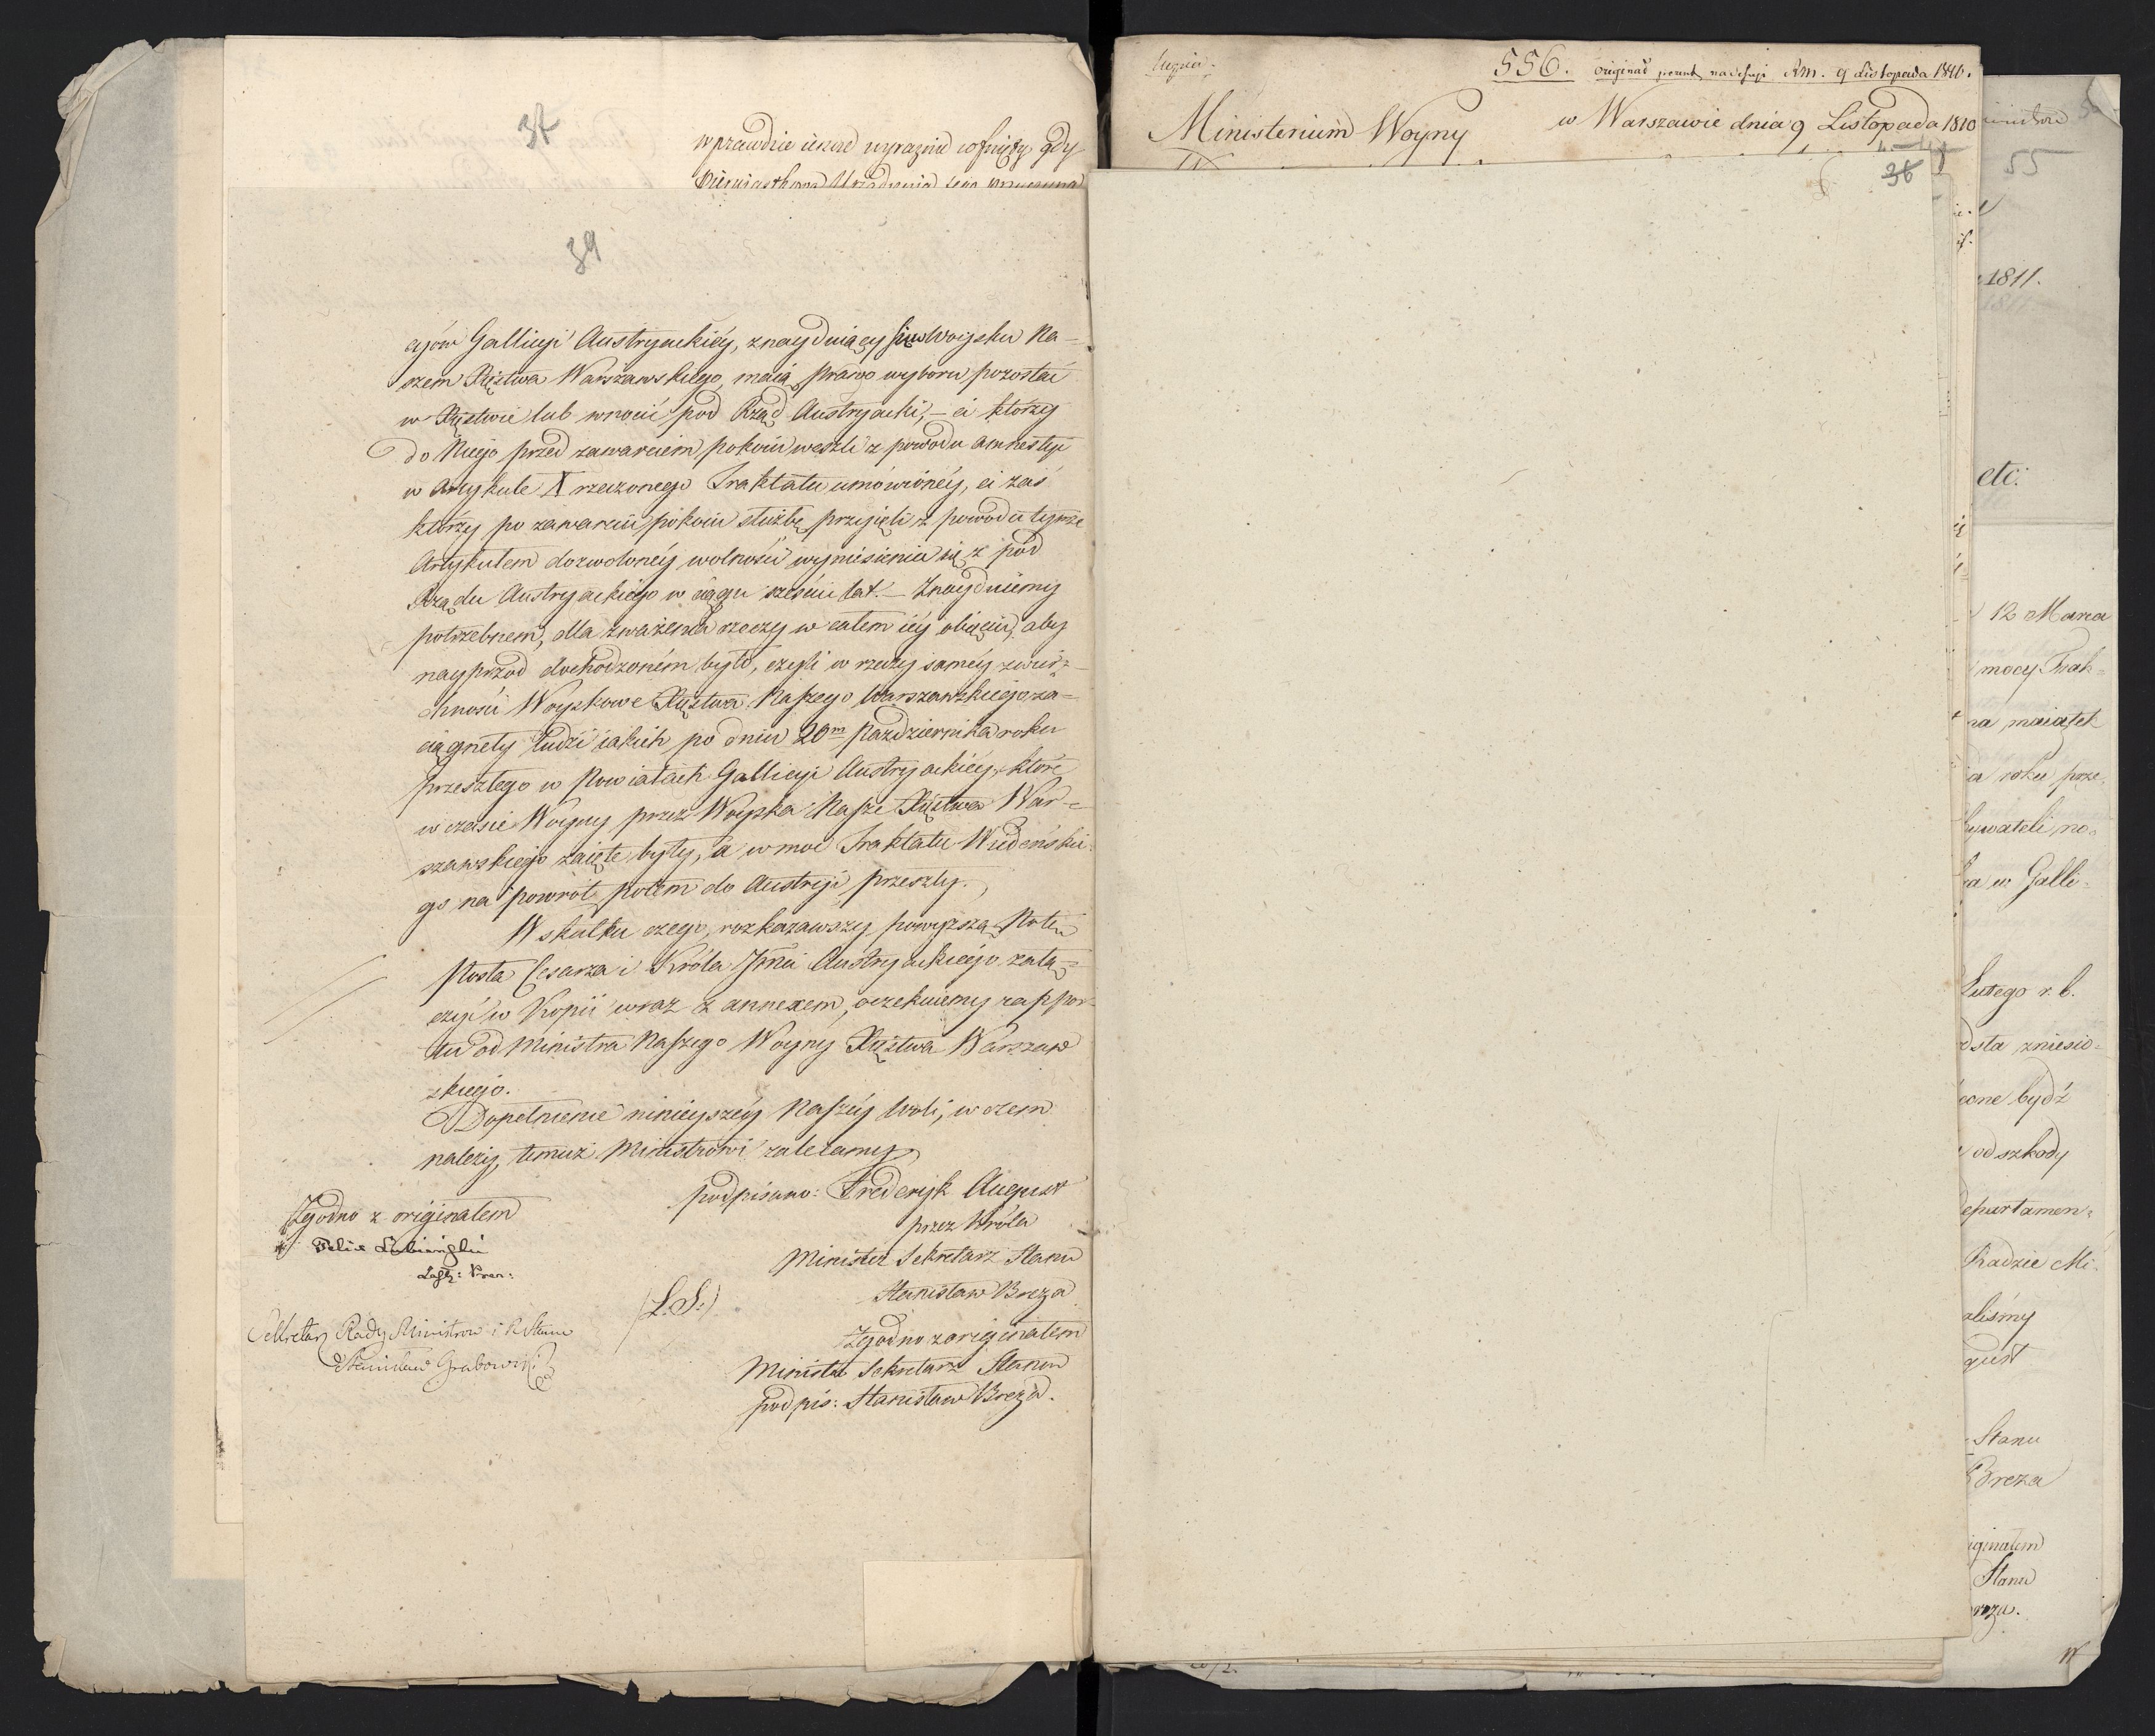 37
wprawdzie układ wyraźnie cofnięty gdy
39
cyów Gallicyi Austryackiéy, znayduiący się w Woysku Na-
szem Xięstwa Warszawskiego, maią prawo wyboru pozostać
w Xięstwie lub wrocić pod Rząd Austryacki, – ci którzy
do Niego przed zawarciem pokoiu weszli z powodu amnestyi
w Artykule X rzeczonego Traktatu umówionéy, ci zaś
którzy po zawarciu pokoiu służbę przyięli z powodu tymże
Artykułem dozwolonéy wolności wyniesienia się z pod
Rządu Austryackiego w ciągu sześciu lat. – Znayduiemy
potrzebnem, dla zważenia rzeczy w całem iéy obięciu, aby
nayprzód dochodzoném było, czyli w rzeczy saméy zwierz-
chności Woyskowe Xięstwa Naszego Warszawskiego za-
ciągnęły ludzi iakich po dniu 20m Października roku
przeszłego w Powiatach Gallicyi Austryackiéy, które
w czasie Woyny przez Woyska Nasze Xięstwa War-
szawskiego zaięte były, a w moc Traktatu Wiedeńskie-
go na powrót potem do Austryi przeszły.
W skutku czego, rozkazawszy powyższą Notę
Posła Cesarza i Króla Jmci Austryackiego załą-
czyć w Kopii wraz z annexem, oczekuiemy rappor-
tu od Ministra Naszego Woyny Xięstwa Warszaw
skiego.
Dopełnienie ninieyszéy Naszéy Woli, w czem
należy, temuż Ministrowi zalecamy
podpisano: Frederyk August
przez Króla
Minister Sekretarz Stanu
Stanisław Breza
(L.S.)
Zgodno z originałem
Minister Sekretarz Stanu
podpis: Stanisław Breza.
Zgodno z originałem
Felix Łubieński
Sekretarz Rady Ministrow i R Stanu
Stanisław Grabowski
556. originał
9 Listopada 1810.
Ministerium Woyny
w Warszawie dnia 9 Listopada 1810
38
55
1811.
etc:
12 Marca
mocy Trak-
na maiątek
ia roku prze
bywateli no-
ka w Galli-
Lutego r. b.
osta zniesio-
cone bydź
od szkody
epartamen-
Radzie Mi-
aliśmy
gust
Stanu
Breza
iginałem
Stanu
reza.